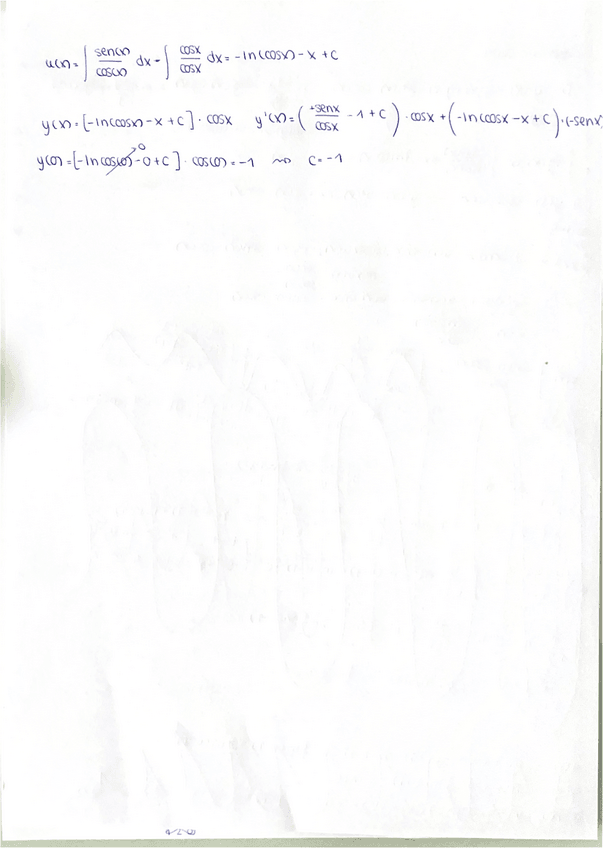 u(x) = ∫ sen(x)/cos(x) dx - ∫ cosx/cosx dx = -ln(cosx) - x + C
y(x) = [-ln(cosx) - x + C] · cosx y'(x) = (+senx/cosx - 1 + C) · cosx + (-ln(cosx - x + C) · (-senx)
y(0) = [-ln cos(0) - 0 + C] · cos(0) = -1 ⇝ C = -1